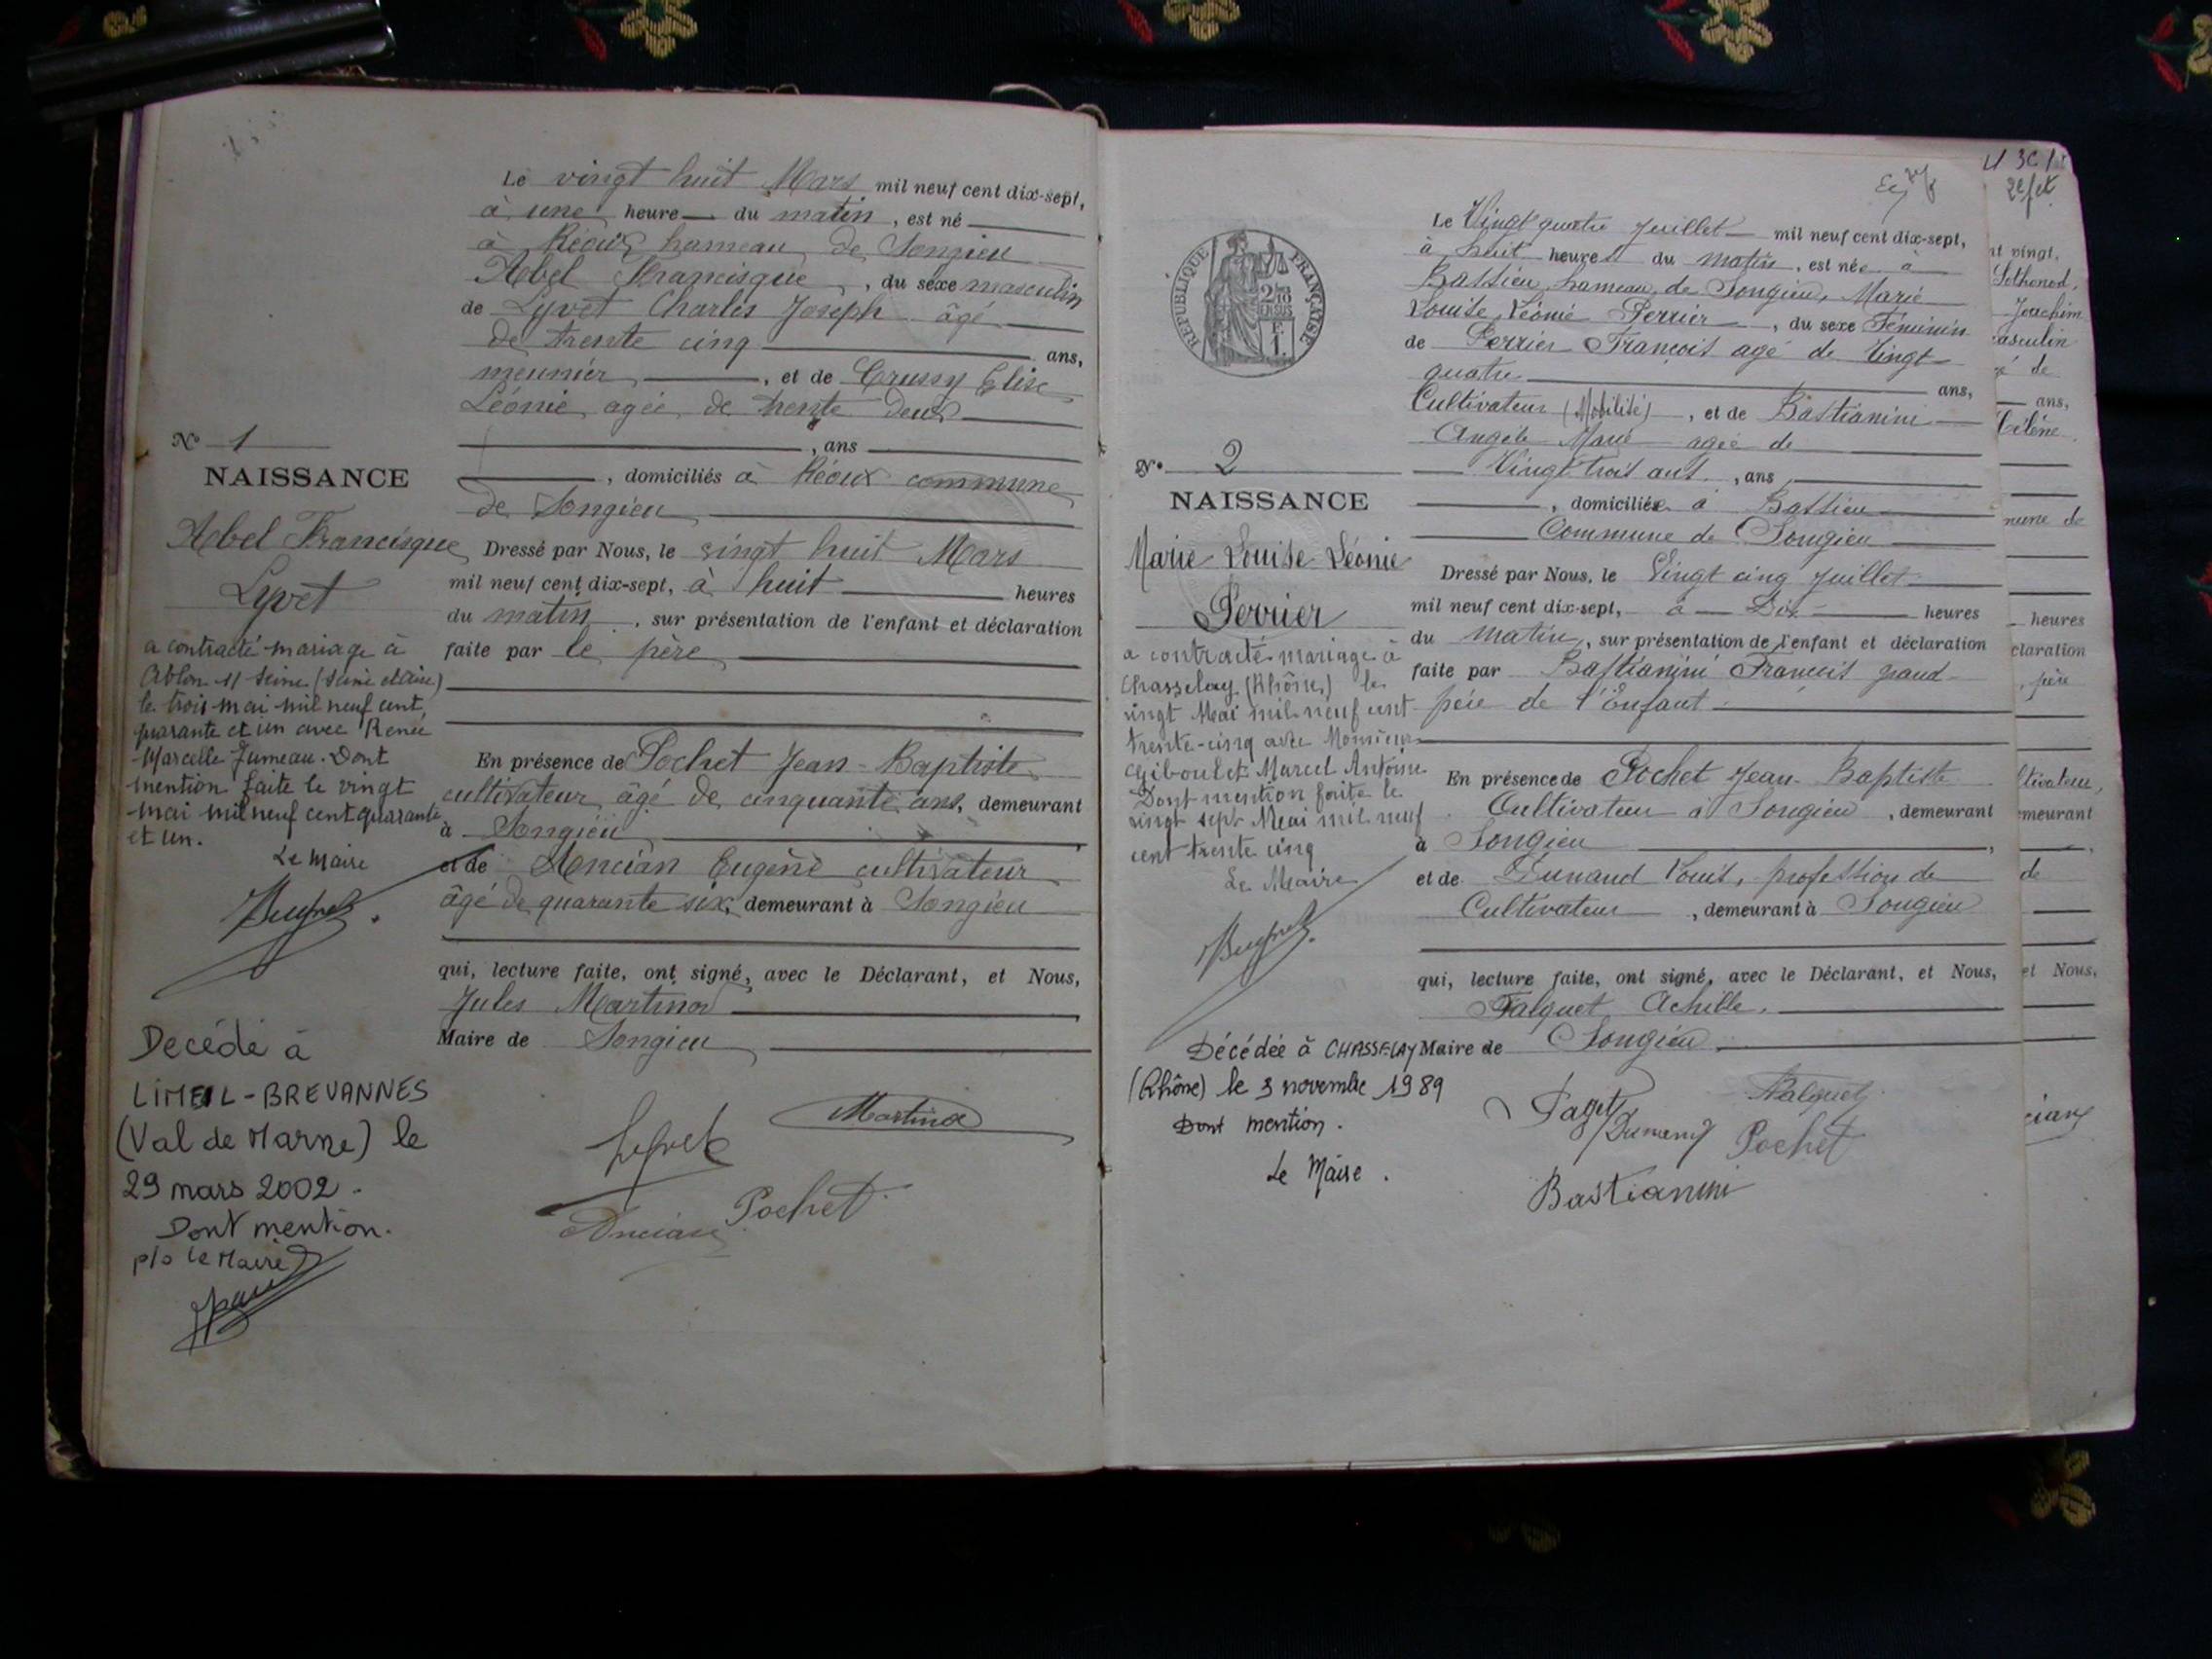 N° 1
NAISSANCE
Abel Francisque
Lyvet
a contracté mariage à
Ablon s/ Seine (Seine et Oise)
le trois mai mil neuf cent
quarante et un avec Renée
Marcelle Jumeau. Dont
mention faite le vingt
mai mil neuf cent quarante
et un.
Le Maire
Décédé à
LIMEIL-BREVANNES
(Val de Marne) le
29 mars 2002.
Dont mention.
p/o le Maire
Le vingt huit Mars mil neuf cent dix-sept,
à une heure du matin, est né
à Réoux hameau de Songieu
Abel Francisque, du sexe masculin
de Lyvet Charles Joseph âgé
de trente cinq ans,
meunier, et de Crussy Elise
Léonie agée de trente deux
, ans
, domiciliés à Réoux commune
de Songieu
Dressé par Nous, le vingt huit Mars
mil neuf cent dix-sept, à huit heures
du matin, sur présentation de l'enfant et déclaration
faite par le père
En présence de Pochet Jean-Baptiste
cultivateur âgé de cinquante ans, demeurant
à Songieu
et de Ancian Eugène cultivateur
âgé de quarante six, demeurant à Songieu
qui, lecture faite, ont signé, avec le Déclarant, et Nous,
Jules Martinod
Maire de Songieu
Lyvet Martinod
Ancian Pochet
RÉPUBLIQUE FRANÇAISE
2/10 EN SUS
F. 1.
N° 2
NAISSANCE
Marie Louise Léonie
Perrier
a contracté mariage à
Chasselay (Rhône) le
vingt Mai mil neuf cent
trente-cinq avec Monsieur
Giboulet Marcel Antoine
Dont mention faite le
vingt sept Mai mil neuf
cent trente cinq
Le Maire
Décédée à CHASSELAY
(Rhône) le 3 novembre 1989
Dont mention.
Le Maire.
Le Vingt quatre Juillet mil neuf cent dix-sept,
à huit heures du matin, est née à
Bassieu hameau de Songieu, Marie
Louise Léonie Perrier, du sexe Féminin
de Perrier François agé de Vingt
quatre ans,
Cultivateur (Mobilisé), et de Bastianini
Angèle Marie agée de
Vingt trois ans, ans
, domiciliée à Bassieu
Commune de Songieu
Dressé par Nous, le Vingt cinq Juillet
mil neuf cent dix-sept, à Dix heures
du Matin, sur présentation de l'enfant et déclaration
faite par Bastianini Francois grand
père de l'Enfant
En présence de Pochet Jean-Baptiste
Cultivateur à Songieu, demeurant
à Songieu,
et de Dunand Louis, profession de
Cultivateur, demeurant à Songieu
qui, lecture faite, ont signé, avec le Déclarant, et Nous,
Falquet Achille,
Maire de Songieu
Falquet
Dunand Pochet
Bastianini
nt vingt,
Sothonod,
Joachim
masculin
gé de
ans,
Célène
mune de
heures
claration
père
ltivateur,
emeurant
de
et Nous,
cian